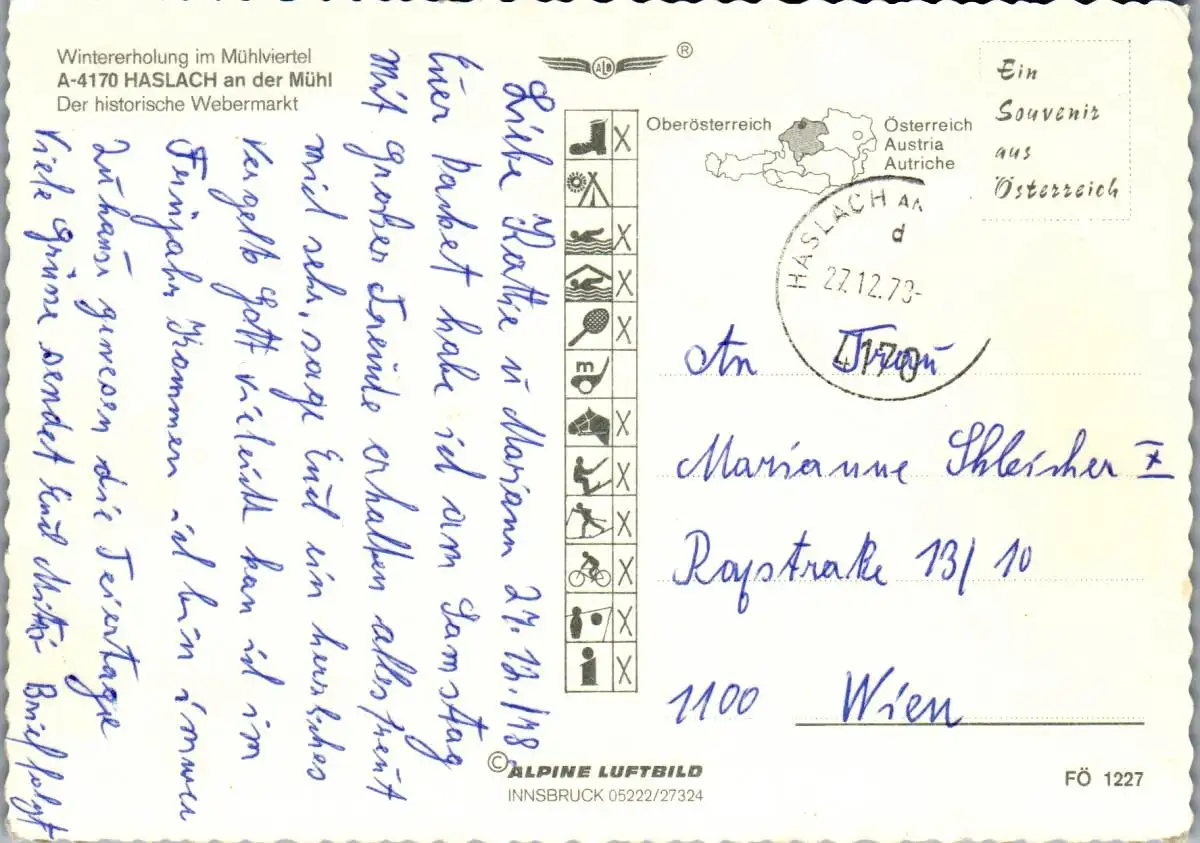 Wintererholung im Mühlviertel
A-4170 HASLACH an der Mühl
Der historische Webermarkt
ALB
®
Oberösterreich
Österreich
Austria
Autriche
Ein
Souvenir
aus
Österreich
HASLACH AN
d
27.12.78-
4170
Liebe Kathe u Mariann 27.12./78
Euer Packet habe ich am Samstag
mit großer Freude erhalten alles freut
mich sehr, sage Euch ein herzliches
vergelts Gott vieleicht kan ich im
Frühjahr Kommen ich bin immer
zuhause gewesen die Feiertage
Viele Grüsse sendet Euch Mitzi Brief folgt
An Frau
Marianne Skleicher X
Raxstraße 13/10
1100 Wien
© ALPINE LUFTBILD
INNSBRUCK 05222/27324
FÖ 1227